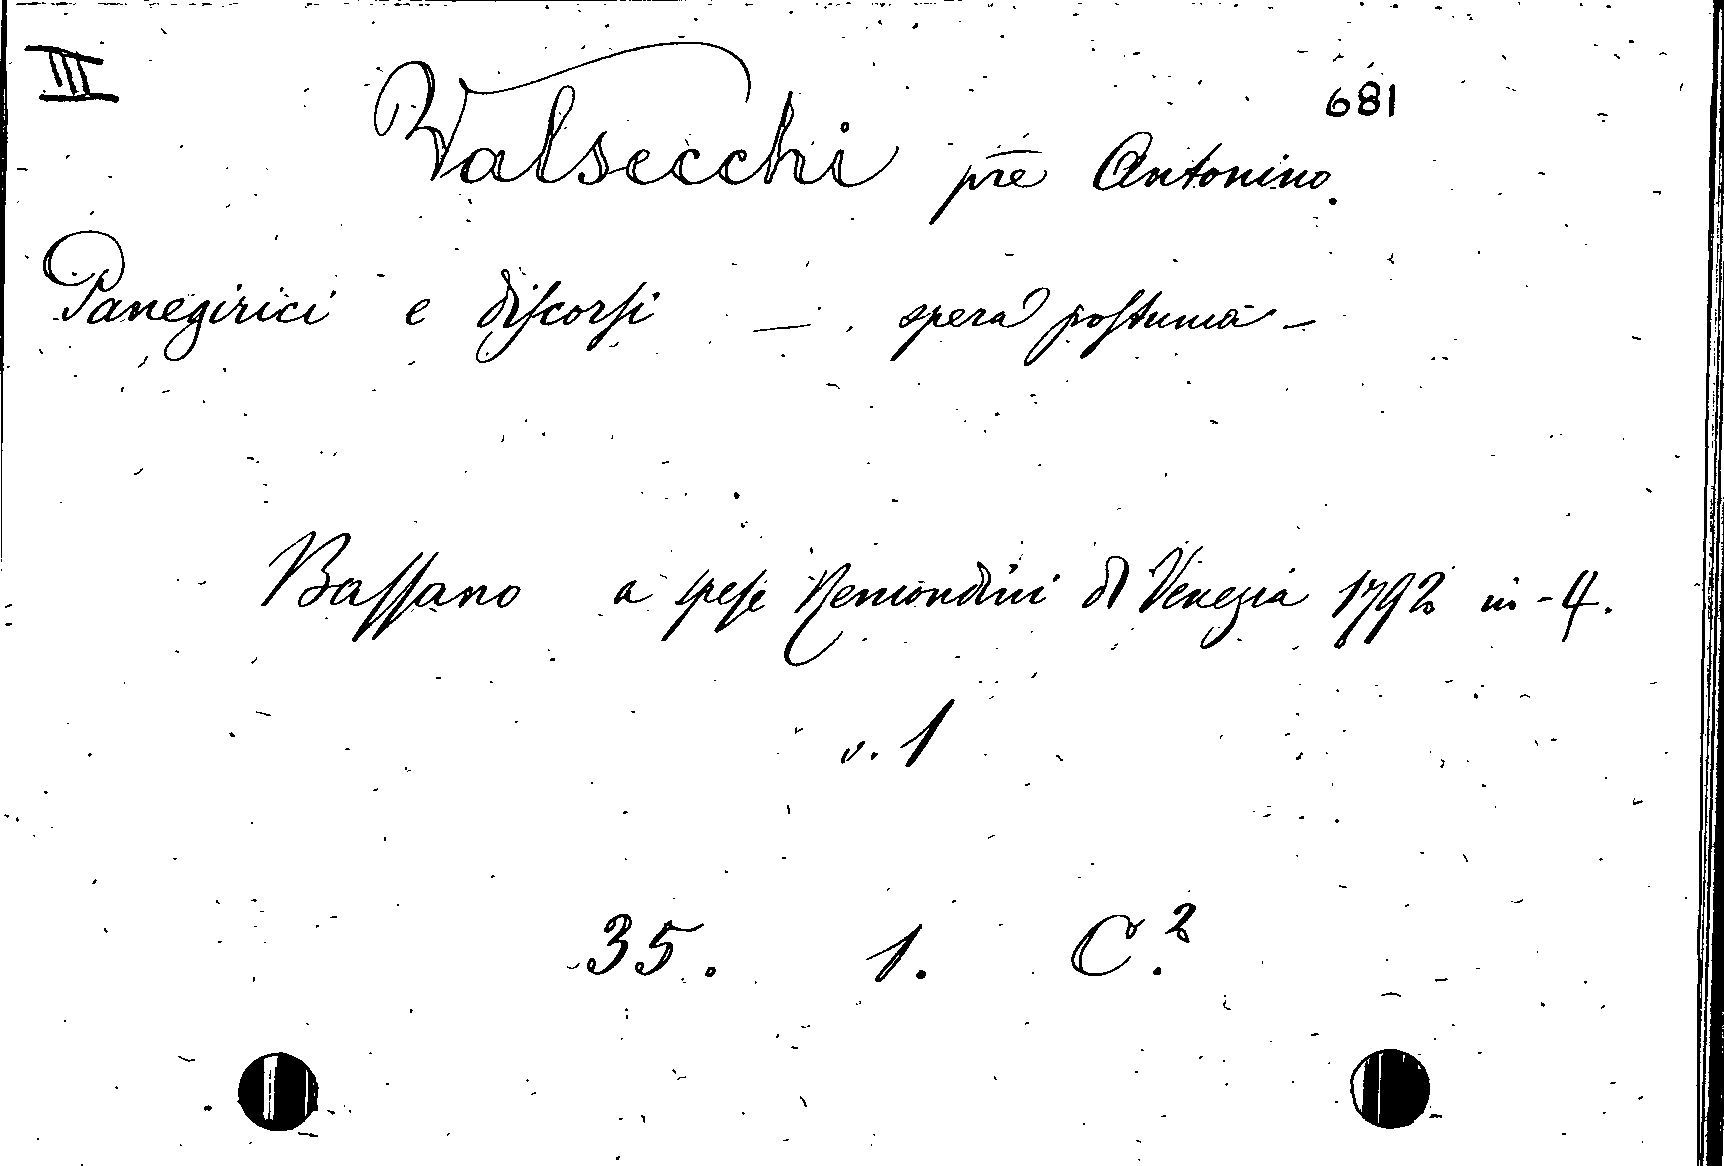 III
681
Valsecchi pre Antonino.
Panegirici e discorsi — opera postuma -
Bassano a spese Remondini di Venezia 1792 in - 4.
v. 1
35. 1. C.2